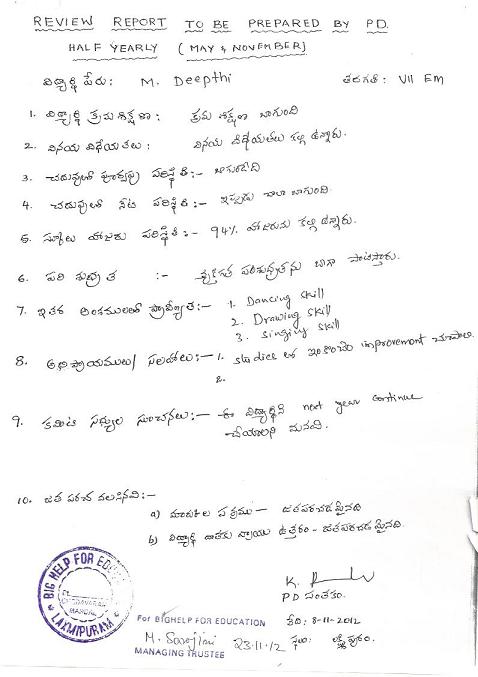 REVIEW REPORT TO BE PREPARED BY PD.
HALF YEARLY (MAY & NOVEMBER)
విద్యార్థి పేరు: M. Deepthi తరగతి: VII EM
1. విద్యార్థి క్రమశిక్షణ: క్రమశిక్షణ బాగుంది
2. వినయ విధేయతలు: వినయ విధేయతలు కల్గి ఉన్నారు.
3. చదువులో పూర్వపు పరిస్థితి:- బాగుండేది
4. చదువులో నేటి పరిస్థితి:- ఇప్పుడు చాలా బాగుంది.
5. స్కూలు హాజరు పరిస్థితి:- 94% హాజరును కల్గి ఉన్నారు.
6. పరిశుభ్రత :- వ్యక్తిగత పరిశుభ్రతను బాగా పాటిస్తారు.
7. ఇతర అంశములలో ప్రావీణ్యత:- 1. Dancing skill
2. Drawing skill
3. singing skill
8. అభిప్రాయములు/ సలహాలు:- 1. studies లో ఇంకొంచెం improvement చూపాలి.
2.
9. కమిటి సభ్యుల సూచనలు:- ఈ విద్యార్థిని next year continue
చేయాలని మనవి.
10. జత పరచ వలసినవి:-
a) మార్కుల పత్రము - జతపరచడమైనది
b) విద్యార్థి దాతకు వ్రాయు ఉత్తరం - జతపరచడమైనది.
K.
PD సంతకం.
BIG HELP FOR EDUCATION
MANDAL
LAXMIPURAM
For BIGHELP FOR EDUCATION తేది: 8-11-2012
M. Sarojini 23.11.12 స్థలం: లక్ష్మీపురం.
MANAGING TRUSTEE